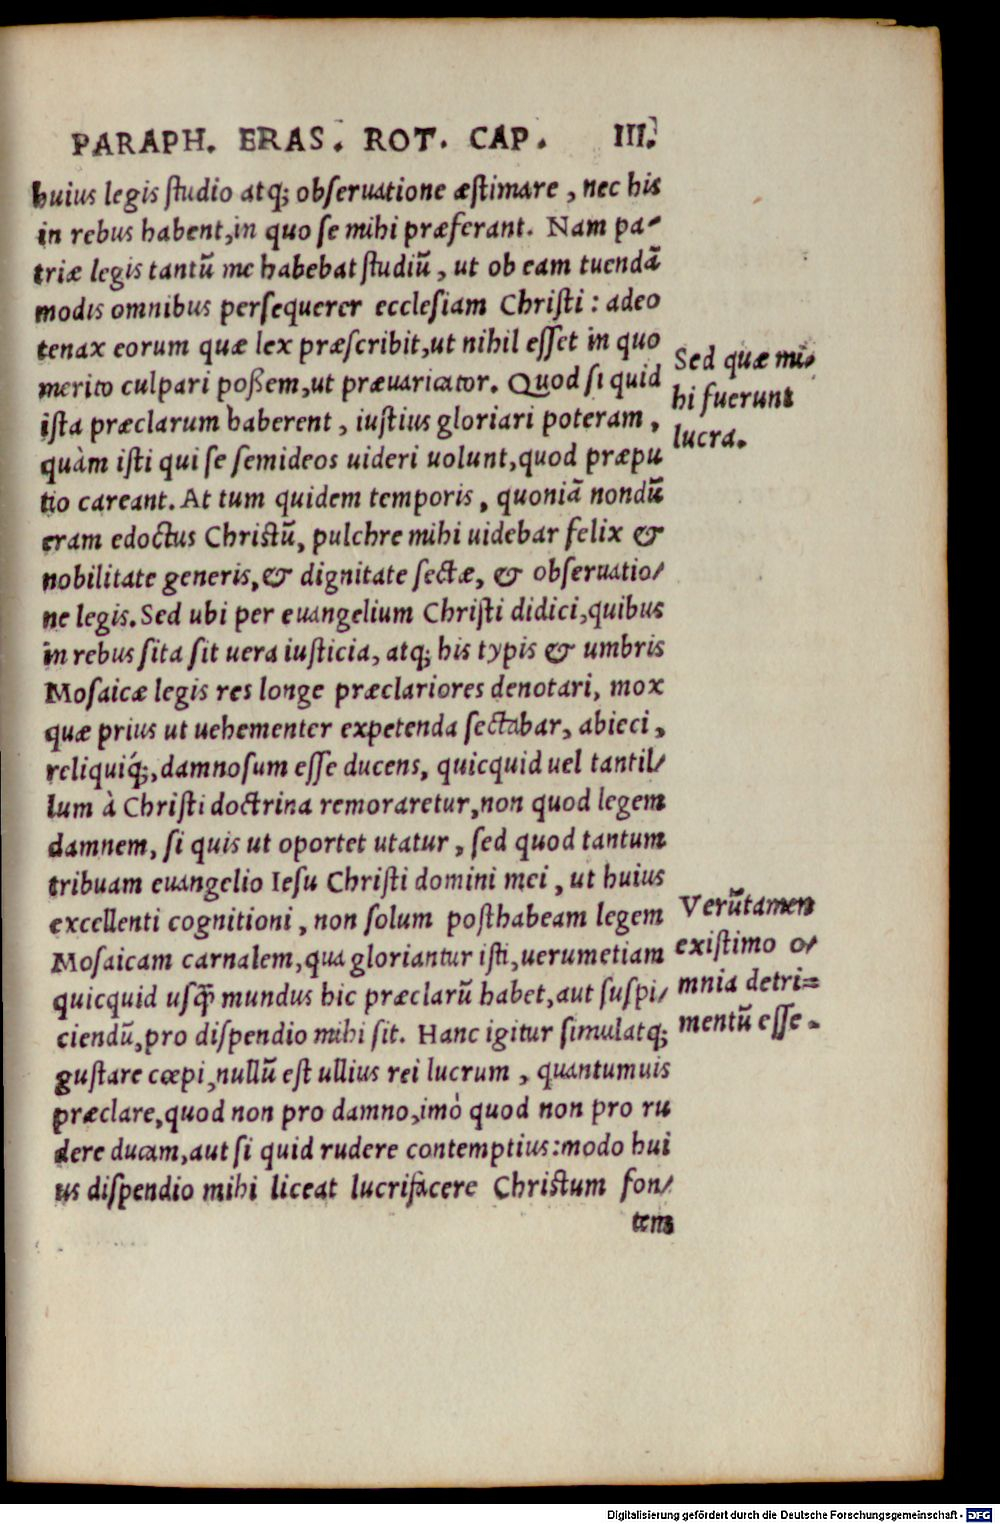 PARAPH. ERAS. ROT. CAP. III.
huius legis ſtudio atq; obſeruatione æſtimare, nec his
in rebus habent, in quo ſe mihi præferant. Nam pa-
triæ legis tantũ me habebat ſtudiũ, ut ob eam tuendã
modis omnibus perſequerer eccleſiam Chriſti: adeo
tenax eorum quæ lex præſcribit, ut nihil eſſet in quo
merito culpari poßem, ut præuaricator. Quod ſi quid
iſta præclarum haberent, iuſtius gloriari poteram,
quàm iſti qui ſe ſemideos uideri uolunt, quod præpu
tio careant. At tum quidem temporis, quoniã nondũ
eram edoctus Chriſtũ, pulchre mihi uidebar felix &
nobilitate generis, & dignitate ſectæ, & obſeruatio/
ne legis. Sed ubi per euangelium Chriſti didici, quibus
in rebus ſita ſit uera iuſticia, atq; his typis & umbris
Moſaicæ legis res longe præclariores denotari, mox
quæ prius ut uehementer expetenda ſectabar, abieci,
reliquiq́;, damnoſum eſſe ducens, quicquid uel tantil/
lum à Chriſti doctrina remoraretur, non quod legem
damnem, ſi quis ut oportet utatur, ſed quod tantum
tribuam euangelio Ieſu Chriſti domini mei, ut huius
excellenti cognitioni, non ſolum poſthabeam legem
Moſaicam carnalem, qua gloriantur iſti, uerumetiam
quicquid uſq̃ mundus hic præclarũ habet, aut ſuſpi/
ciendũ, pro diſpendio mihi ſit. Hanc igitur ſimulatq;
guſtare cœpi, nullũ eſt ullius rei lucrum, quantumuis
præclare, quod non pro damno, imò quod non pro ru
dere ducam, aut ſi quid rudere contemptius: modo hui
us diſpendio mihi liceat lucrifacere Chriſtum fon/
tem
Sed quæ mi/
hi fuerunt
lucra.
Verũtamen
exiſtimo o/
mnia detri=
mentũ eſſe.
Digitalisierung gefördert durch die Deutsche Forschungsgemeinschaft - DFG